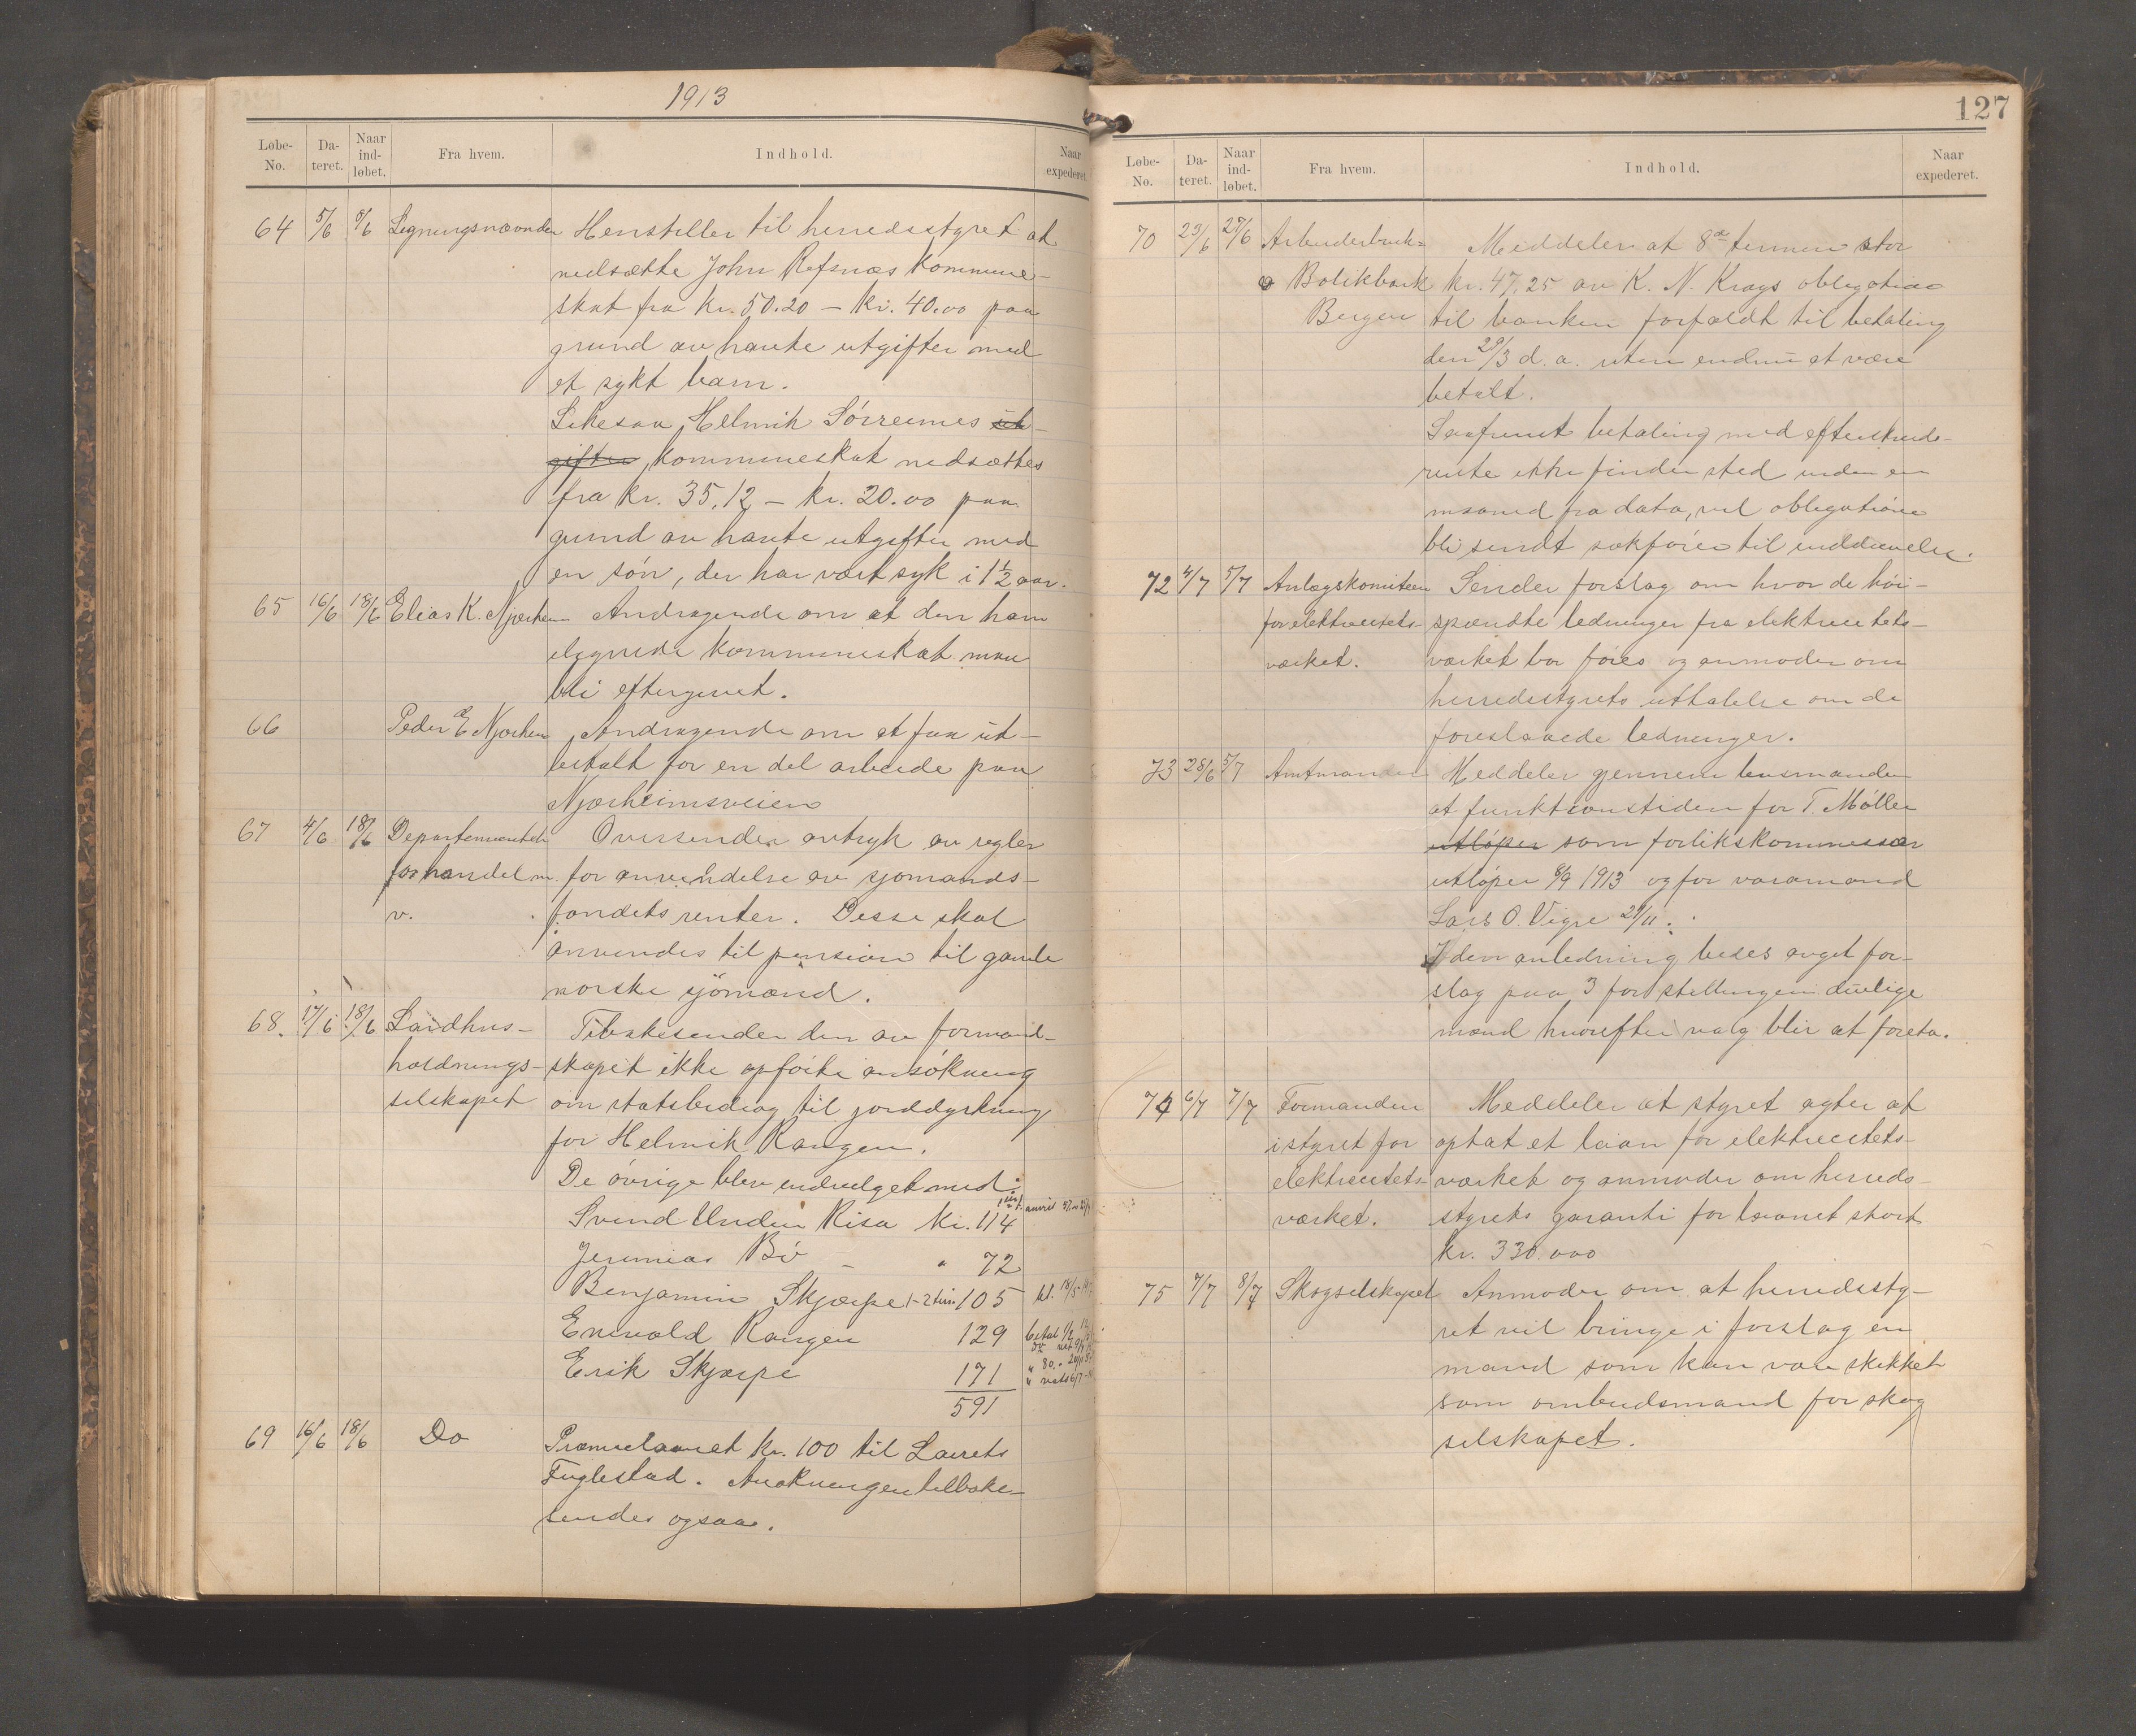 1913
Løbe-No. Dateret. Naar indløbet. Fra hvem. Indhold. Naar expederet.
64 5/6 6/6 Ligningsnævnden Henstiller til herredsstyret at
nedsætte John Refsnæs kommune-
skat fra kr. 50.20 – kr. 40.00 paa
grund av havte utgifter med
et sykt barn.
Likesaa, Helmik Sörreimes ut-
gifter, kommuneskat nedsættes
fra kr. 35.12 – kr. 20.00 paa
grund av havte utgifter med
en sön, der har vært syk i 1½ aar.
65 16/6 18/6 Elias K. Njærheim Andragende om at den ham
ilignede kommuneskat maa
bli eftergivet.
66 Peder E Njærheim Andragende om at faa ut-
betalt for en del arbeide paa
Njærheimsveien
67 4/6 18/6 Departementet Oversender avtryk av regler
for handel m. for anvendelse av sjomands-
v. fondets renter. Disse skal
anvendes til pension til gamle
norske sjömænd.
68. 17/6 18/6 Landhus- Tilbakesender den av formand-
holdnings- skapet ikke opförte ansökning
selskapet om statsbidrag til jorddyrkning
for Helmik Rangen.
De övrige blev indvilget med:
Svend Unden Risa kr. 114
Jeremias Bö – " 72
Benjamin Skjærpe 105
Enevald Rangen 129
Erik Skjærpe 171
591
69 16/6 18/6 Do Præmielaanet kr. 100 til Laurets
Fuglestad. Ansökningen tilbake-
sendes ogsaa.
127
Løbe-No. Dateret. Naar indløbet. Fra hvem. Indhold. Naar expederet.
70 23/6 27/6 Arbeiderbruk- Meddeler at 8de termin stor
o Bolikbank kr. 47,25 av K. N. Krags obligation
Bergen til banken forfaldt til betaling
den 29/3 d. a. uten endnu at være
betalt.
Saafremt betaling med efterskuds-
rente ikke finder sted inden en
maaned fra dato, vil obligationen
bli sendt sakförer til inddrivelse.
72 4/7 5/7 Anlægskomiteen Sender forslag om hvor de höi-
for elektricitets- spændte ledninger fra elektricitets-
værket. værket bør föres og anmoder om
herredsstyrets uttalelse om de
foreslaaede ledninger.
73 28/6 5/7 Amtmanden Meddeler gjennem lensmanden
at funktionstiden for T. Möller
utlöper som forlikskommissær
utlöper 8/9 1913 og for varamand
Lars O. Vigre 29/11.
I den anledning bedes avget for-
slag paa 3 for stillingen duelige
mænd hvorefter valg blir at foreta.
74 6/7 7/7 Formanden Meddeler at styret agter at
i styret for optat et laan for elektricitets-
elektricitets- værket og anmoder om herreds-
værket. styrets garanti for laanet stort
kr. 330.000
75 7/7 8/7 Skogselskapet Anmoder om at herredssty-
ret vil bringe i forslag en
mand som kan være skikket
som ombudsmand for skog
selskapet.